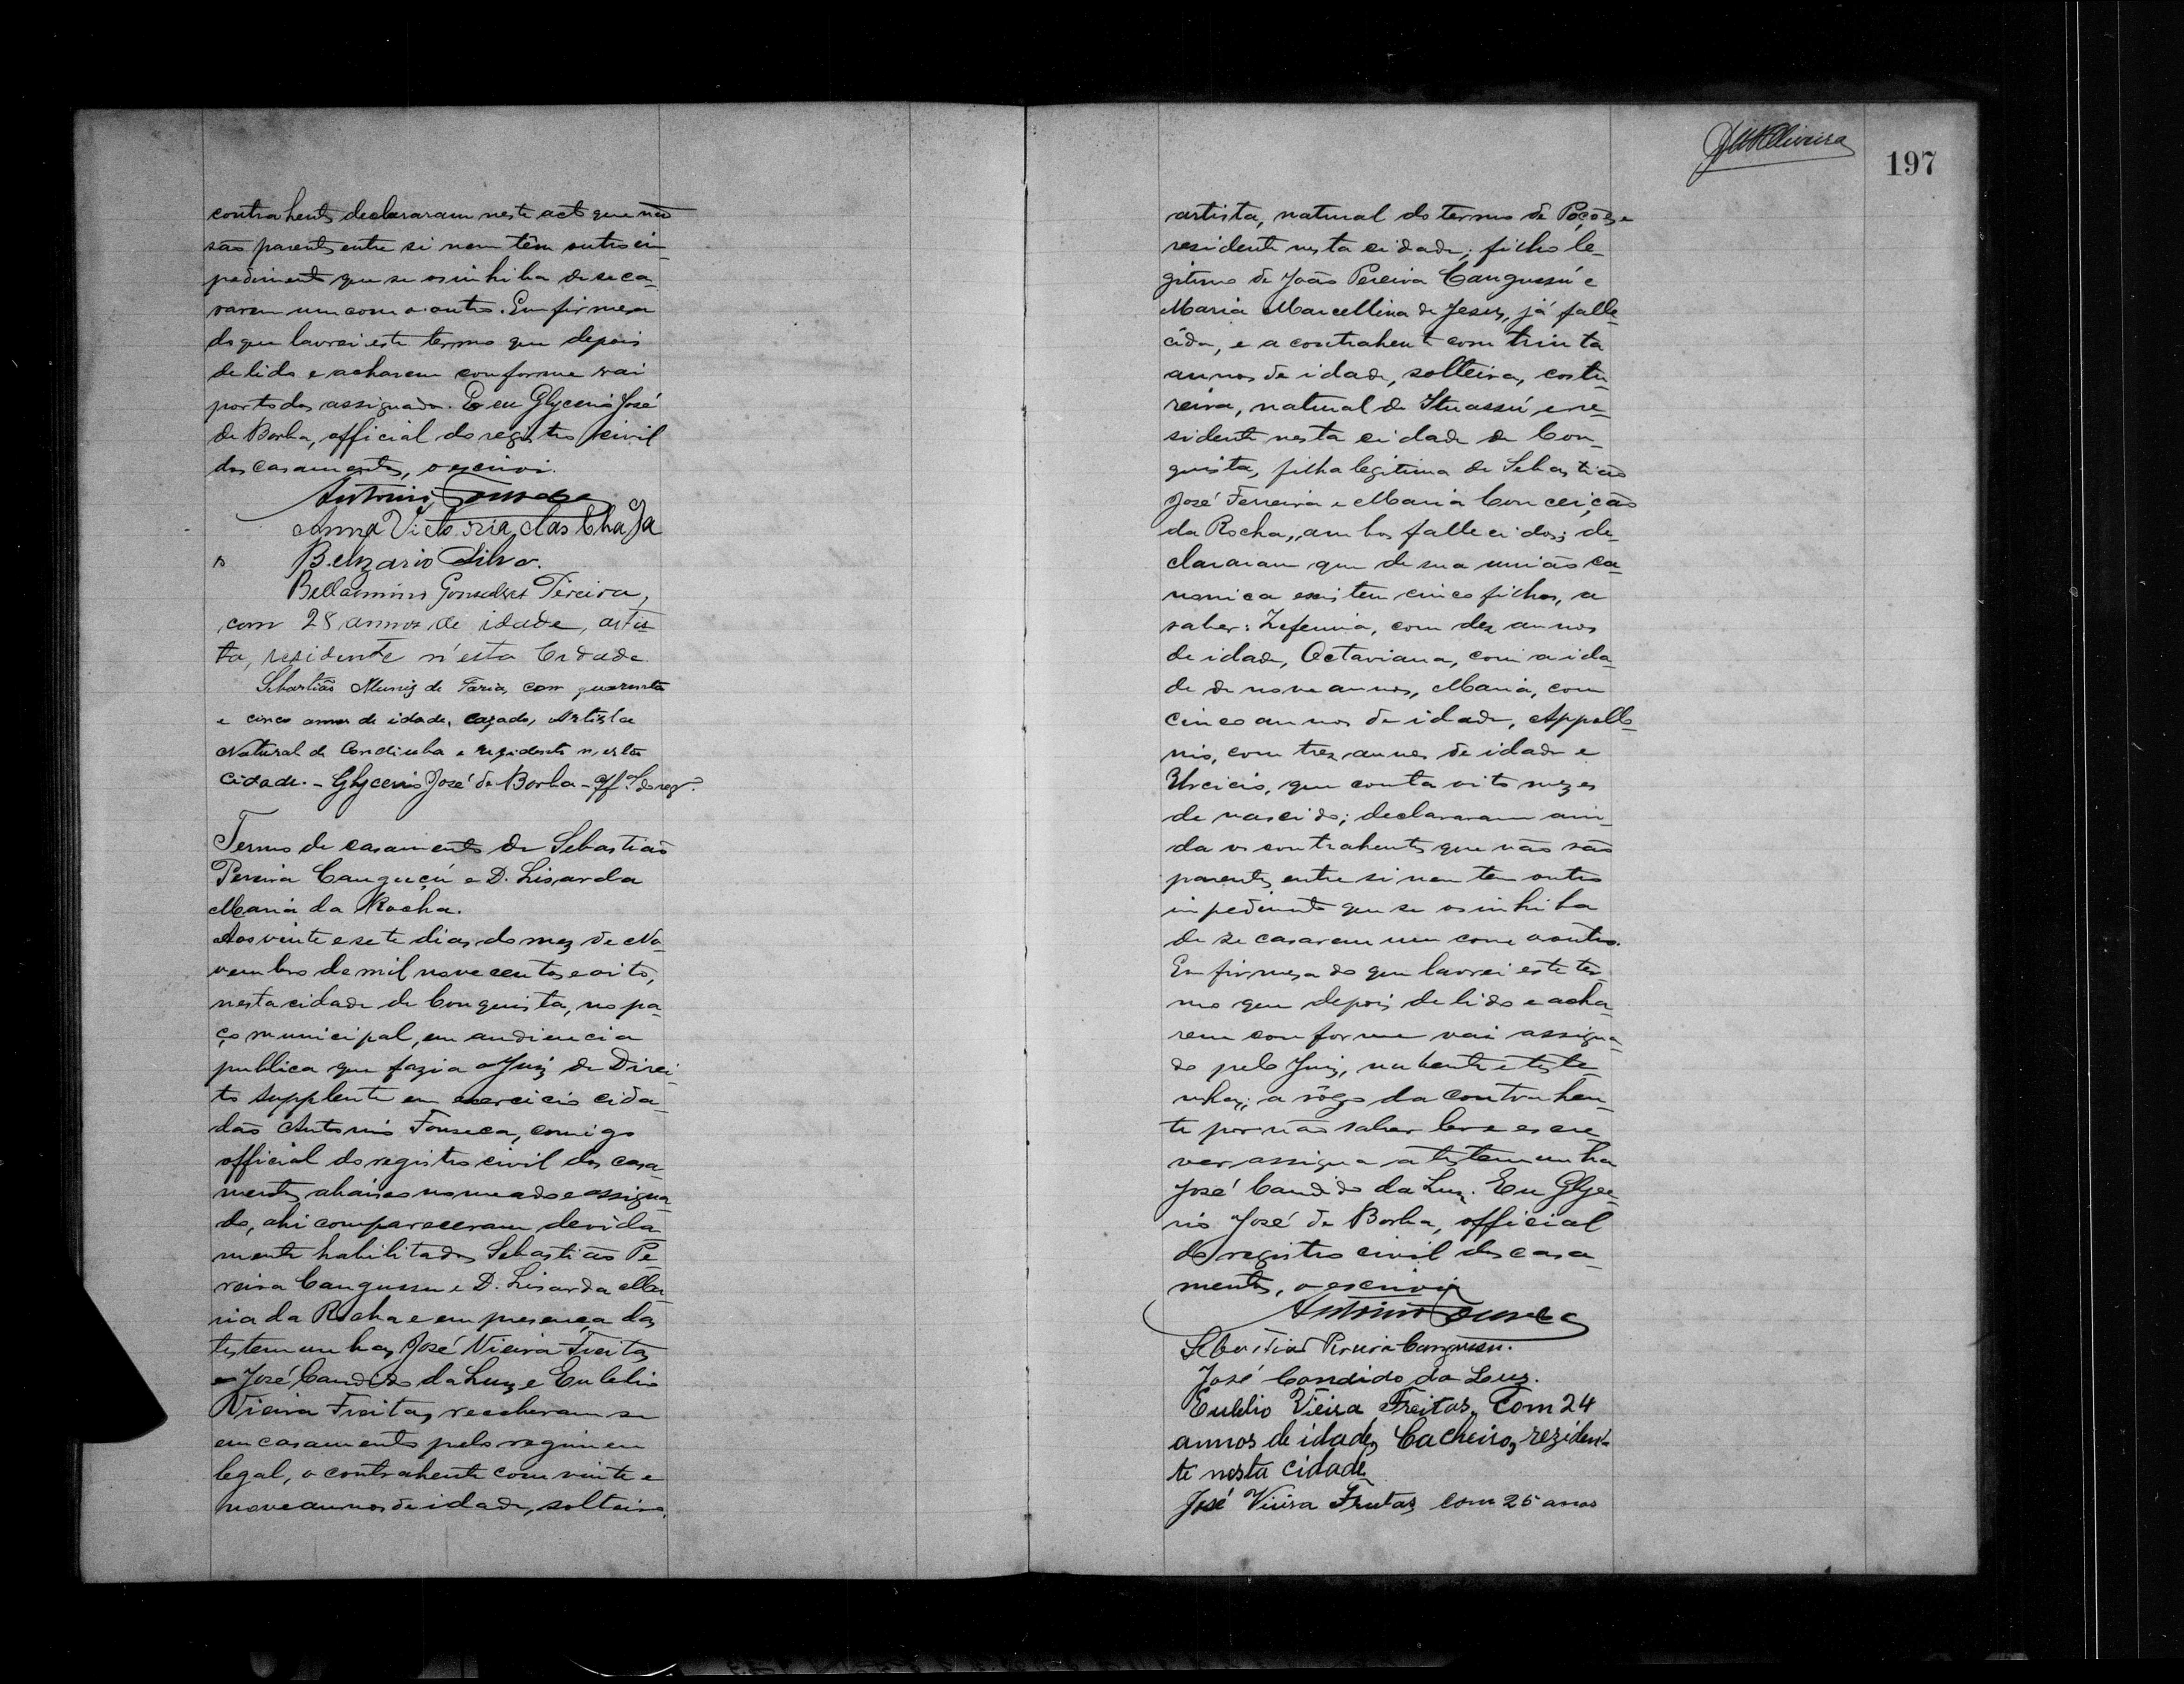 contrahents declararam neste acto que não
são parents entre si nem têm outro im
pedimento que se os inhiba de se ca-
sarem um com o outro. Em firmesa
do que lavrei este termo que depois
de lido e acharem conforme vai
por todos assignado. E eu Glycerio José
de Borba, official do registro civil
dos casamentos, o escrivi.
Antonio Fonseca
Anna Victoria das Chaga
s Belizario Silva.
Bellarmino Gonsalves Pereira,
com 28 annos de idade, artis
ta, rezidente n'esta Cidade
Sebastião Muniz de Faria, com quarenta
e cinco annos de idade, cazado, Artista
Natural de Condeuba e rezidente n'esta
Cidade. - Glycerio José de Borba - Off.al do reg.o
Termo de casamento de Sebastião
Pereira Canguçú e D. Lisarda
Maria da Rocha.
Aos vinte e sete dias do mez de No-
vembro de mil nove centos e oito,
nesta cidade de Conquista, no pa-
ço municipal, em audiencia
publica que fazia o Juiz de Direi-
to supplente em exercicio cida-
dão Antonio Fonseca, comigo
official do registro civil dos casa-
mentos abaixo nomeado e assigna-
do, ahi compareceram devida-
mente habilitados Sebastião Pe-
reira Cangussu e D. Lisarda Ma-
ria da Rocha e em presença das
testemunhas José Vieira Freitas
e José Candido da Luz e Eulelio
Vieira Freitas, receberam se
em casamento pelo regimen
legal, o contrahente com vinte e
nove annos de idade, solteiro,
JMOliveira
197
artista, natural do termo de Poções e
residente nesta cidade, filho le-
gitimo de João Pereira Cangussú e
Maria Marcellina de Jesus, já falle-
cida, e a contrahente com trinta
annos de idade, solteira, costu-
reira, natural de Ituassú e re-
sidente nesta cidade de Con-
quista, filha legitima de Sebastião
José Ferreira e Maria Conceição
da Rocha, ambos fallecidos; de-
clararam que de sua união ca-
nonica existem cinco filhos, a
saber: Zeferina, com dez annos
de idade, Octaviana, com a ida-
de de nove annos, Maria, com
cinco annos de idade, Appollo-
nio, com trez annos de idade e
Urcicio, que conta oito mezes
de nascido; declararam ain-
da os contrahents que não são
parents entre si nem tem outro
impedimento que se os inhiba
de se casarem um com o outro.
Em firmesa do que lavrei este ter-
mo que depois de lido e acha-
rem conforme vai assigna-
do pelo Juiz, nubente e teste-
nhas; a rôgo da contrahen-
te por não saber ler e escre-
ver assigna a testemunha
José Candido da Luz. Eu Glyce-
rio José de Borba, official
do registro civil dos casa-
mentos, o escrivi
Antonio Fonseca
Sebastião Pereira Cangussu.
José Candido da Luz.
Eulelio Vieira Freitas, Com 24
annos de idade, Cacheiro, rezidén-
te nesta Cidade
José Vieira Freitas com 25 anos